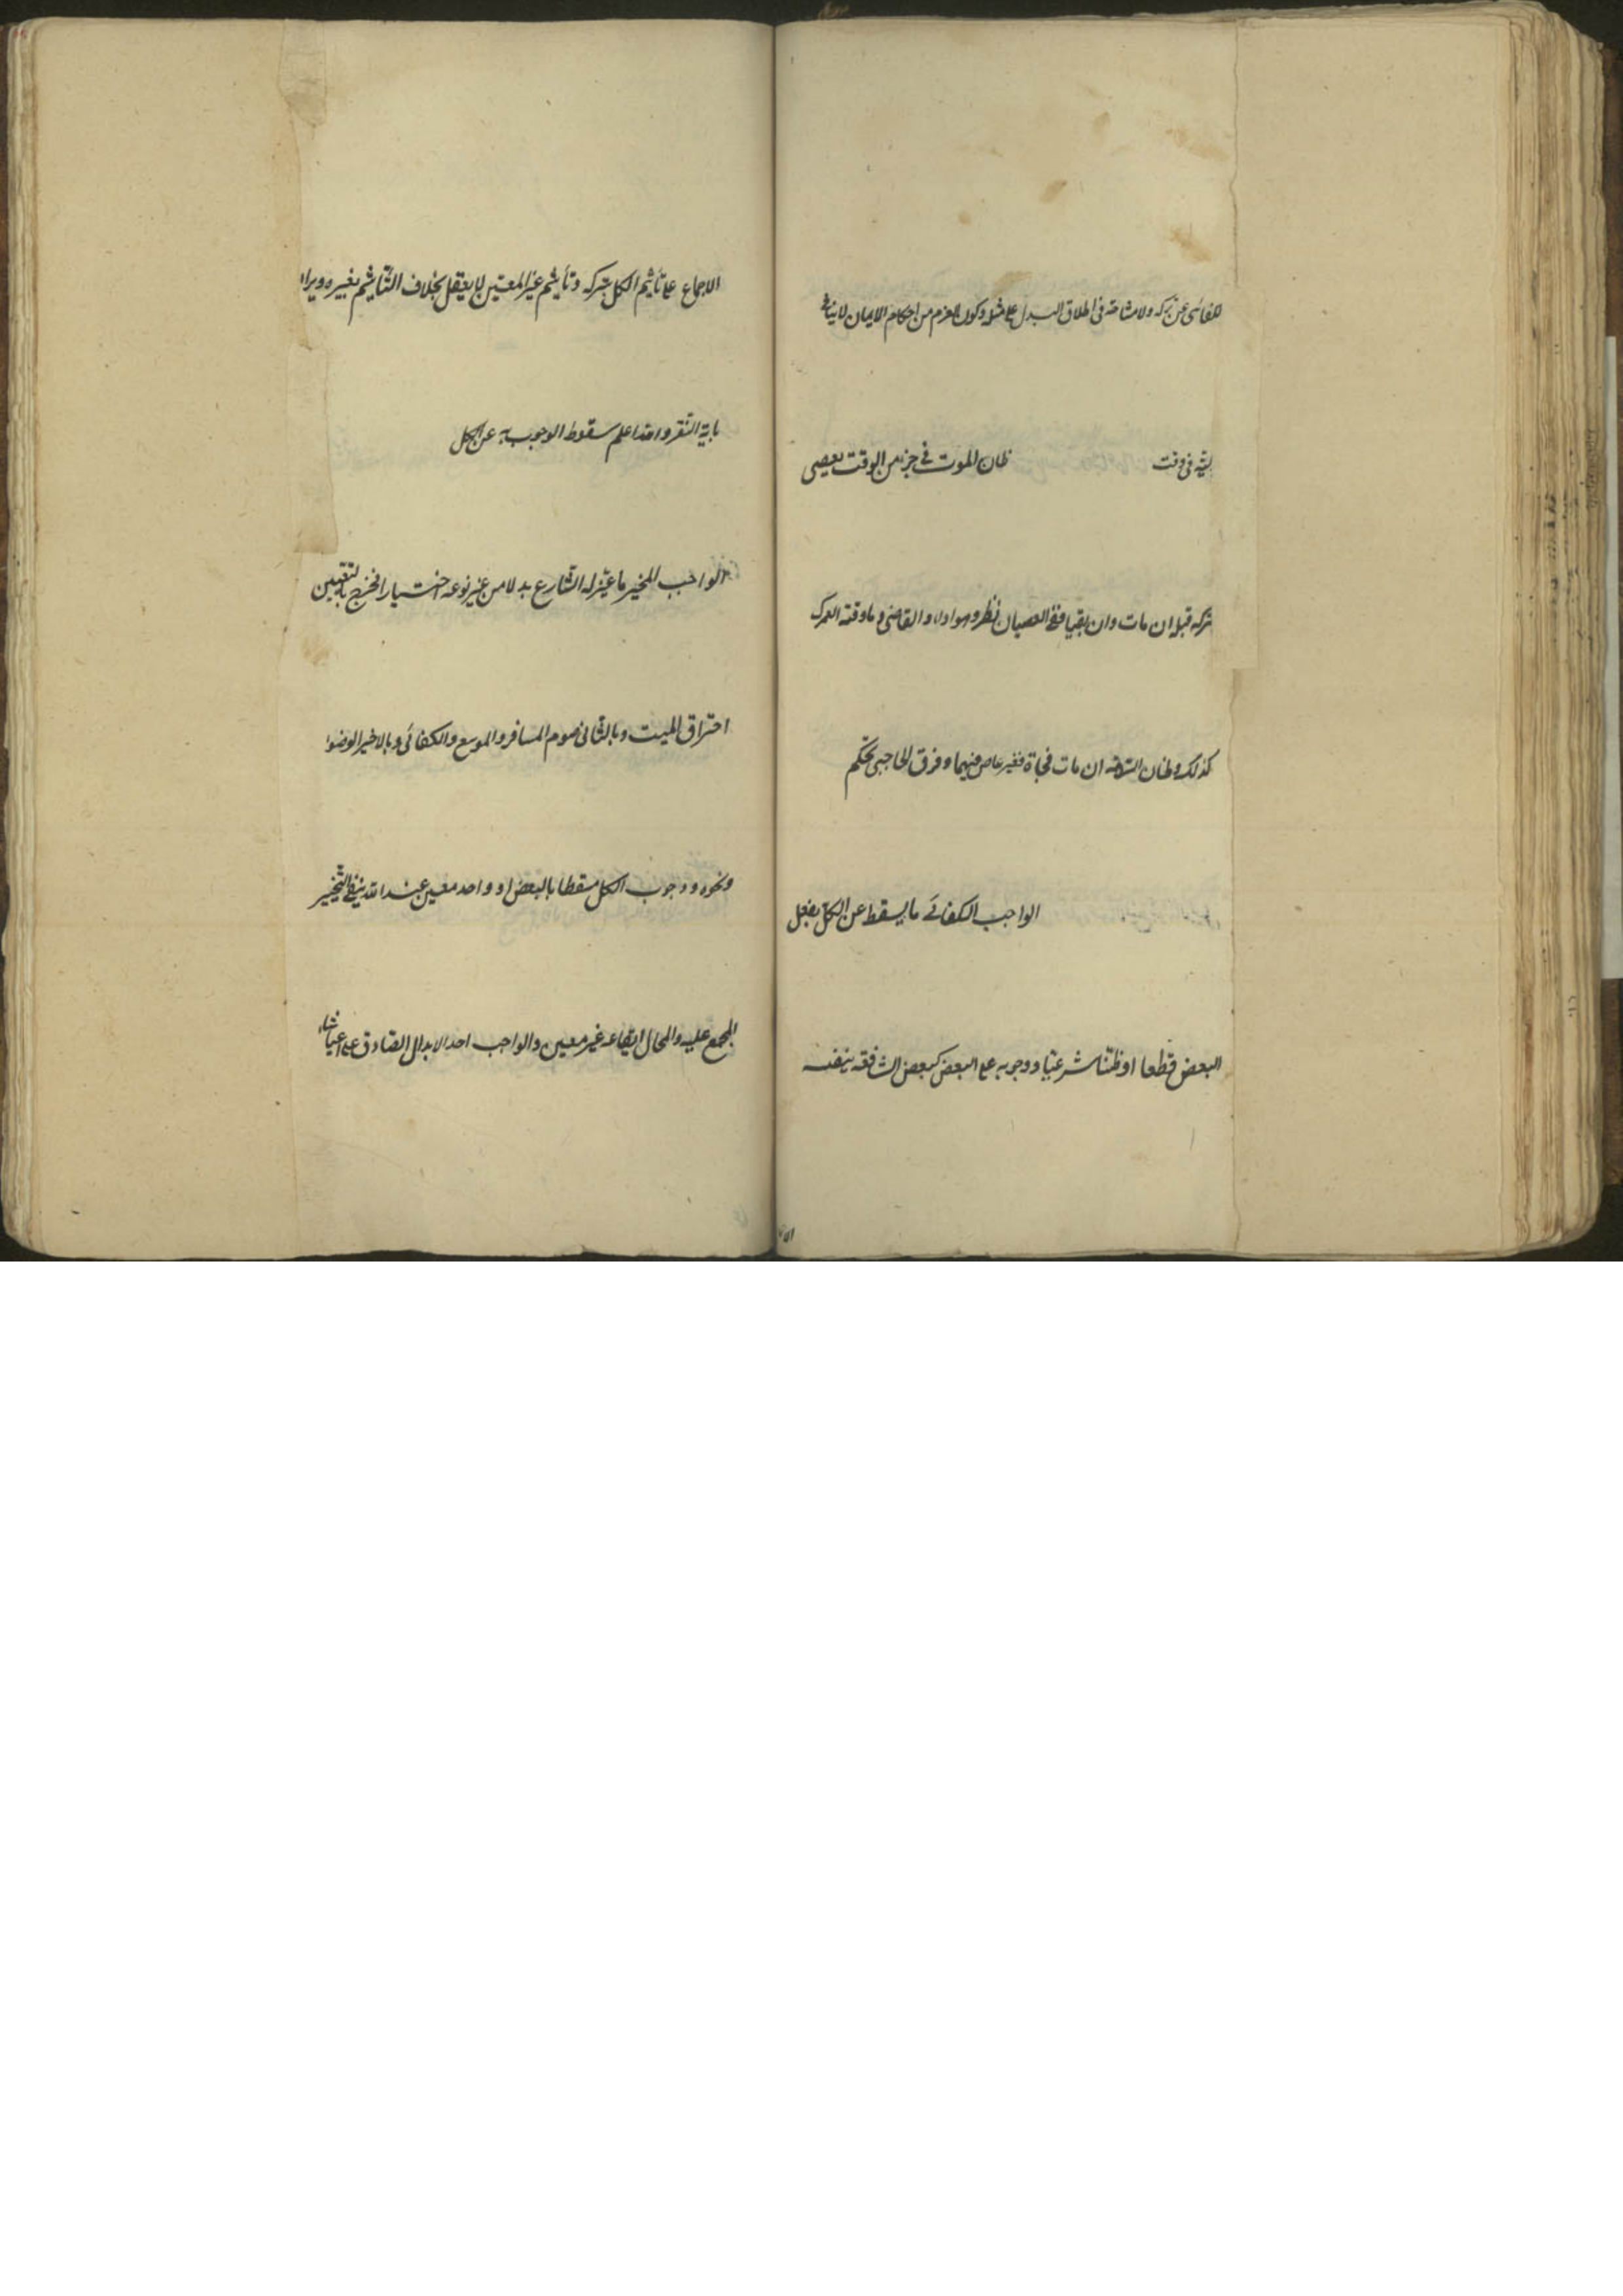 للفائى عن تركه ولا مشاحة فى اطلاق البدل على مثله وكون العزم من احكام الايمان لا ينافى
فى وقت ظان الموت فى جزء من الوقت يعصى
تركه قبله ان مات وان بقى ففى العصيان نظر وهو اداء والقاضى وما وقته العمر
كذلك وظان السلامة ان مات فجاة فغير عاص فيهما وفرق الحاجبى تحكم
الواجب الكفائى ما يسقط عن الكل بفعل
البعض قطعا او ظنا شرعيا ووجوبه على البعض كبعض الشافعية ينفيه
الاجماع على تأثيم الكل بتركه وتأثيم غير المعين لا يعقل بخلاف التأثيم بغيره ويراد
باية النفر واخذا علم سقوط الوجوب به عن الكل
الواجب المخير ما عين له الشارع بدلا من غير نوعه اختيارا فخرج بالتعيين
احتراق الميت وبالثانى صوم المسافر والموسع والكفائى وبالاخير الوضوء
ونحوه ووجوب الكل مسقطا بالبعض او واحد معين عند الله ينفى التخيير
المجمع عليه والمحال ايقاعه غير معين والواجب احد الابدال الصادق على اى شاء